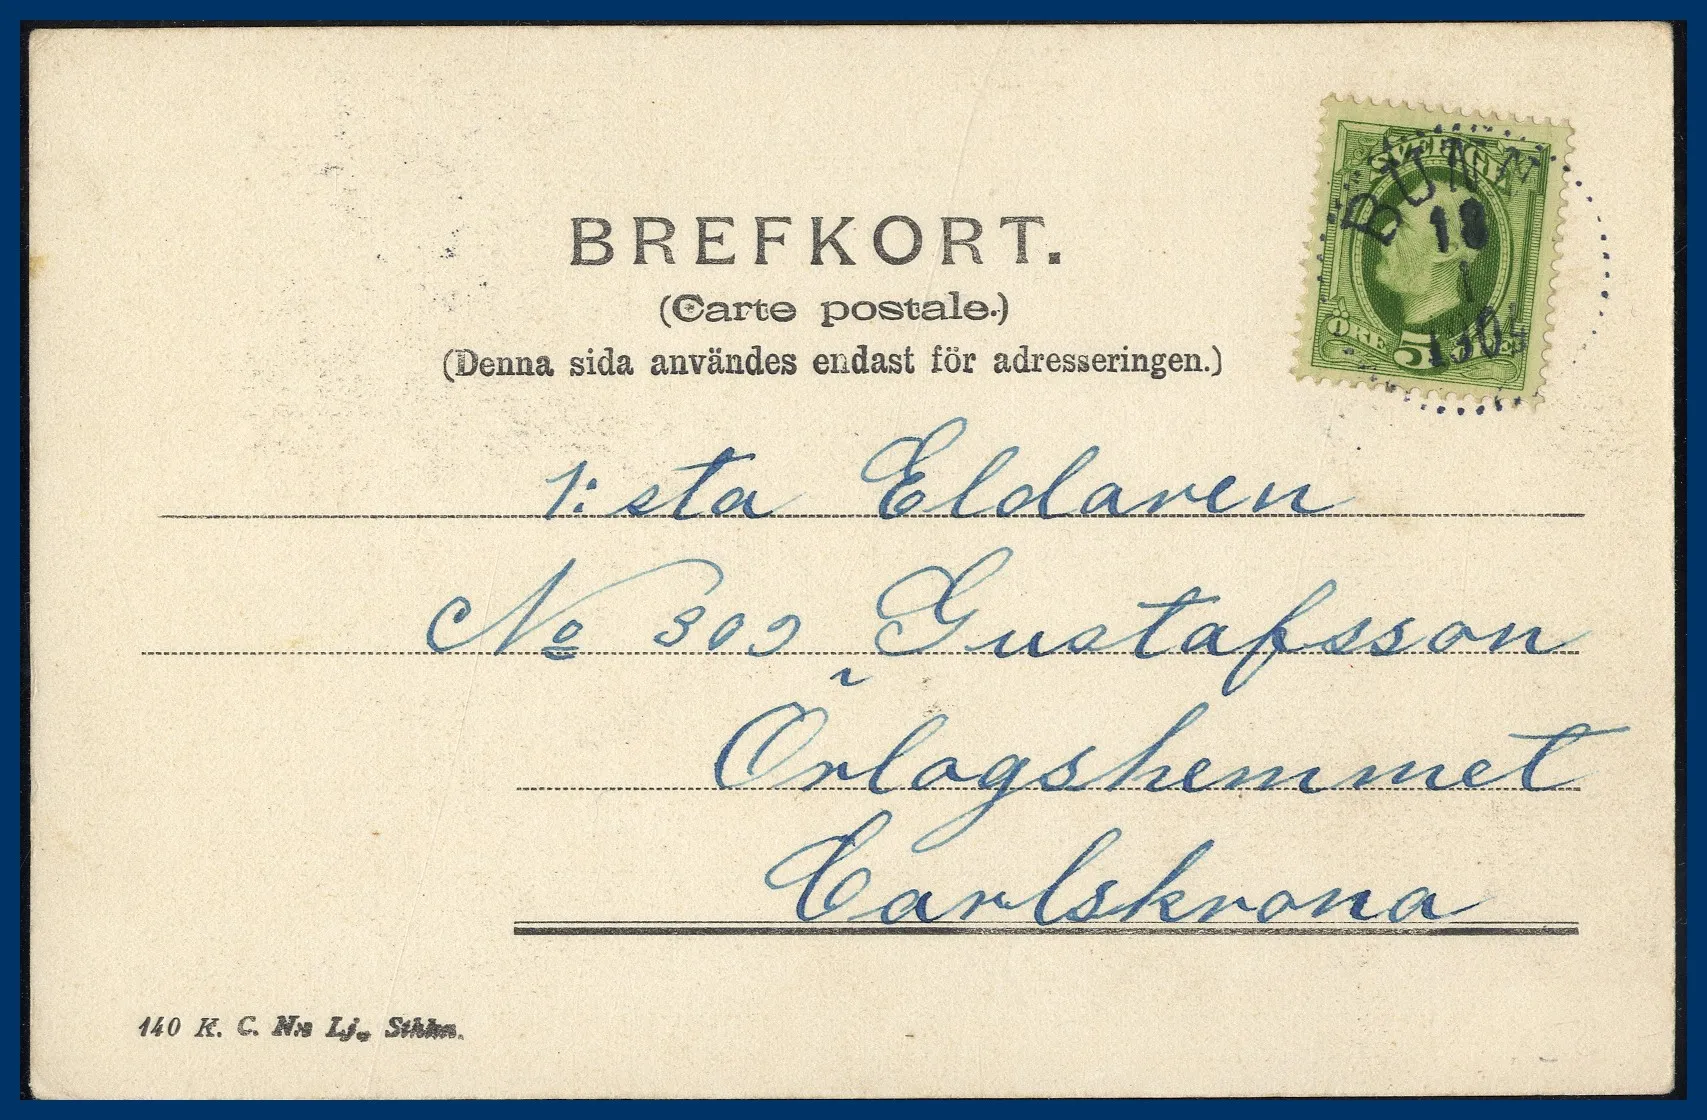 BREFKORT.
(Carte postale.)
(Denna sida användes endast för adresseringen.)
SVERIGE
BUNN
18
1
ÖRE 5
1:sta Eldaren
No 309 Gustafsson
Örlogshemmet
Carlskrona
140 K. C. N:s Lj., Sthlm.